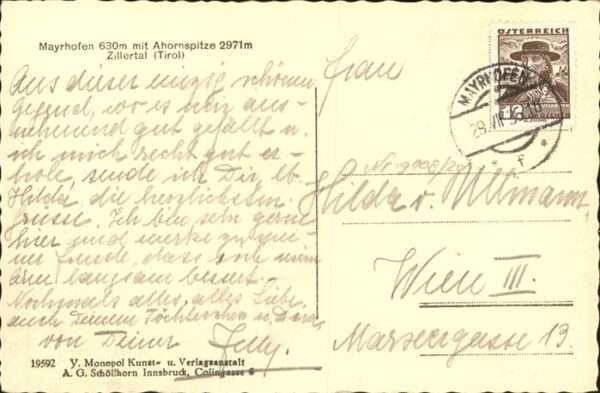 Mayrhofen 630m mit Ahornspitze 2971m
Zillertal (Tirol)
Aus dieser einzig schönen
Gegend, wo es mir aus-
nehmend gut gefällt u.
ich mich recht gut er-
hole, sende ich Dir, lb.
Hilda, die herzlichsten
Grüsse. Ich bin sehr gerne
hier und merke zu mei-
ner Freude, dass sich mein
Arm langsam bessert.
Nochmals alles, alles Liebe,
auch Deinem Töchterchen u.
von Deiner
19592 V. Monopol Kunst- u. Verlagsanstalt
A. G. Schöllhorn Innsbruck, Colingasse 6
ÖSTERREICH
MAYRHOFEN
29.VII.
Frau
Hilda v. Ullmann,
Wien III.
Marxergasse 13.